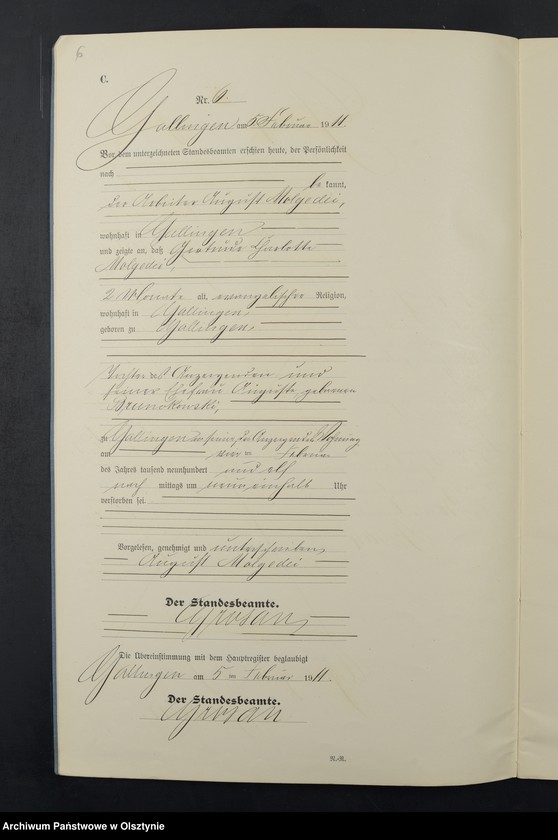 6
C.
Nr. 6.
Gallingen am 5 Februar 1911.
Vor dem unterzeichneten Standesbeamten erschien heute, der Persönlichkeit
nach
be kannt,
der Arbeiter August Molgedei,
wohnhaft in Gallingen
und zeigte an, daß Gertrud Charlotte
Molgedei,
2 Monate alt, evangelischer Religion,
wohnhaft in Gallingen,
geboren zu Gallingen,
Tochter des Anzeigenden und
seiner Ehefrau Auguste geborenen
zu Gallingen in seiner des Anzeigenden Wohnung
am vier ten Februar
des Jahres tausend neunhundert und elf
nach mittags um neun einhalb Uhr
verstorben sei.
Vorgelesen, genehmigt und unterschrieben
August Molgedei
Der Standesbeamte.
Die Übereinstimmung mit dem Hauptregister beglaubigt
Gallingen am 5 ten Februar 1911.
Der Standesbeamte.
N.-R.
Archiwum Państwowe w Olsztynie